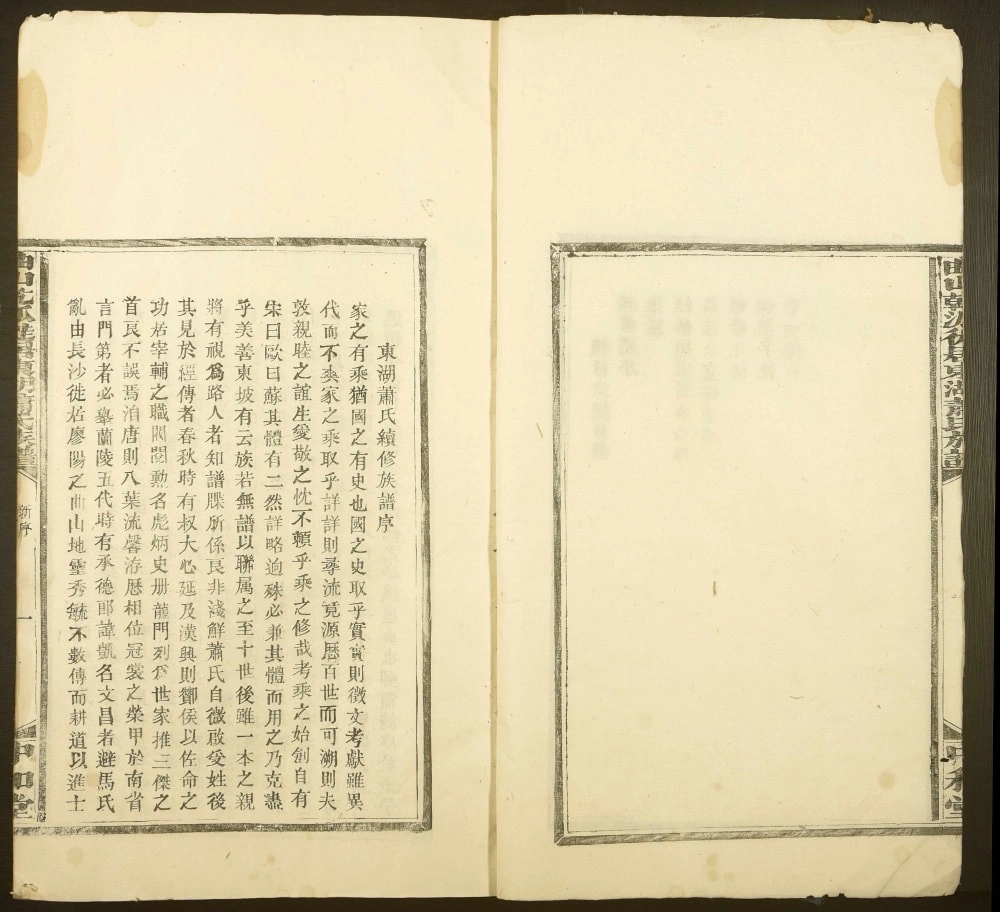 東湖蕭氏續修族譜序
家之有乘猶國之有史也國之史取乎實實則徵文考獻雖異
代而不紊家之乘取乎詳詳則尋流竟源歷百世而可溯則夫
敦親睦之誼生愛敬之忱不賴乎乘之修哉考乘之始創自有
宋曰歐曰蘇其體有二然詳略逈殊必兼其體而用之乃克盡
乎美善東坡有云族若無譜以聯属之至十世後雖一本之親
將有視爲路人者知譜牒所係良非淺鮮蕭氏自微啟受姓後
其見於經傳者春秋時有叔大心延及漢興則酇侯以佐命之
功居宰輔之職閥閱勲名彪炳史册龍門列爲世家推三傑之
首良不誤焉洎唐則八葉流馨洊歷相位冠裳之榮甲於南省
言門第者必擧蘭陵五代時有承德郎諱凱名文昌者避馬氏
亂由長沙徙居廖陽之曲山地靈秀毓不數傳而耕道以進士
新序
一
中和堂
東湖蕭氏族譜
中和堂